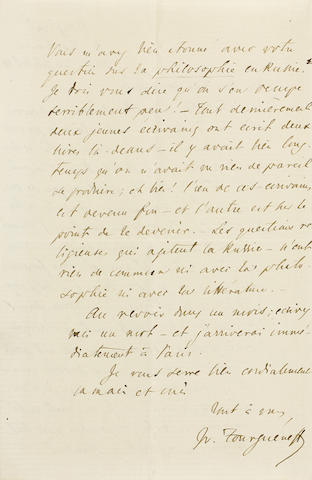 Vous m'avez bien étonné avec votre
question sur la philosophie en Russie.
Je dois vous dire qu'on s'en occupe
terriblement peu! – Tout dernièrement
deux jeunes écrivains ont écrit deux
livres là-dessus – il y avait bien long-
temps qu'on n'avait vu rien de pareil
se produire; eh bien! l'un de ces écrivains
est devenu fou – et l'autre est sur le
point de le devenir. – Les questions re-
ligieuses qui agitent la Russie – n'ont
rien de commun ni avec la philo-
sophie ni avec la littérature. –
Au revoir dans un mois; écrivez
moi un mot – et j'arriverai immé-
diatement à Paris.
Je vous serre bien cordialement
la main et suis
Tout à vous
Iv. Tourguéneff